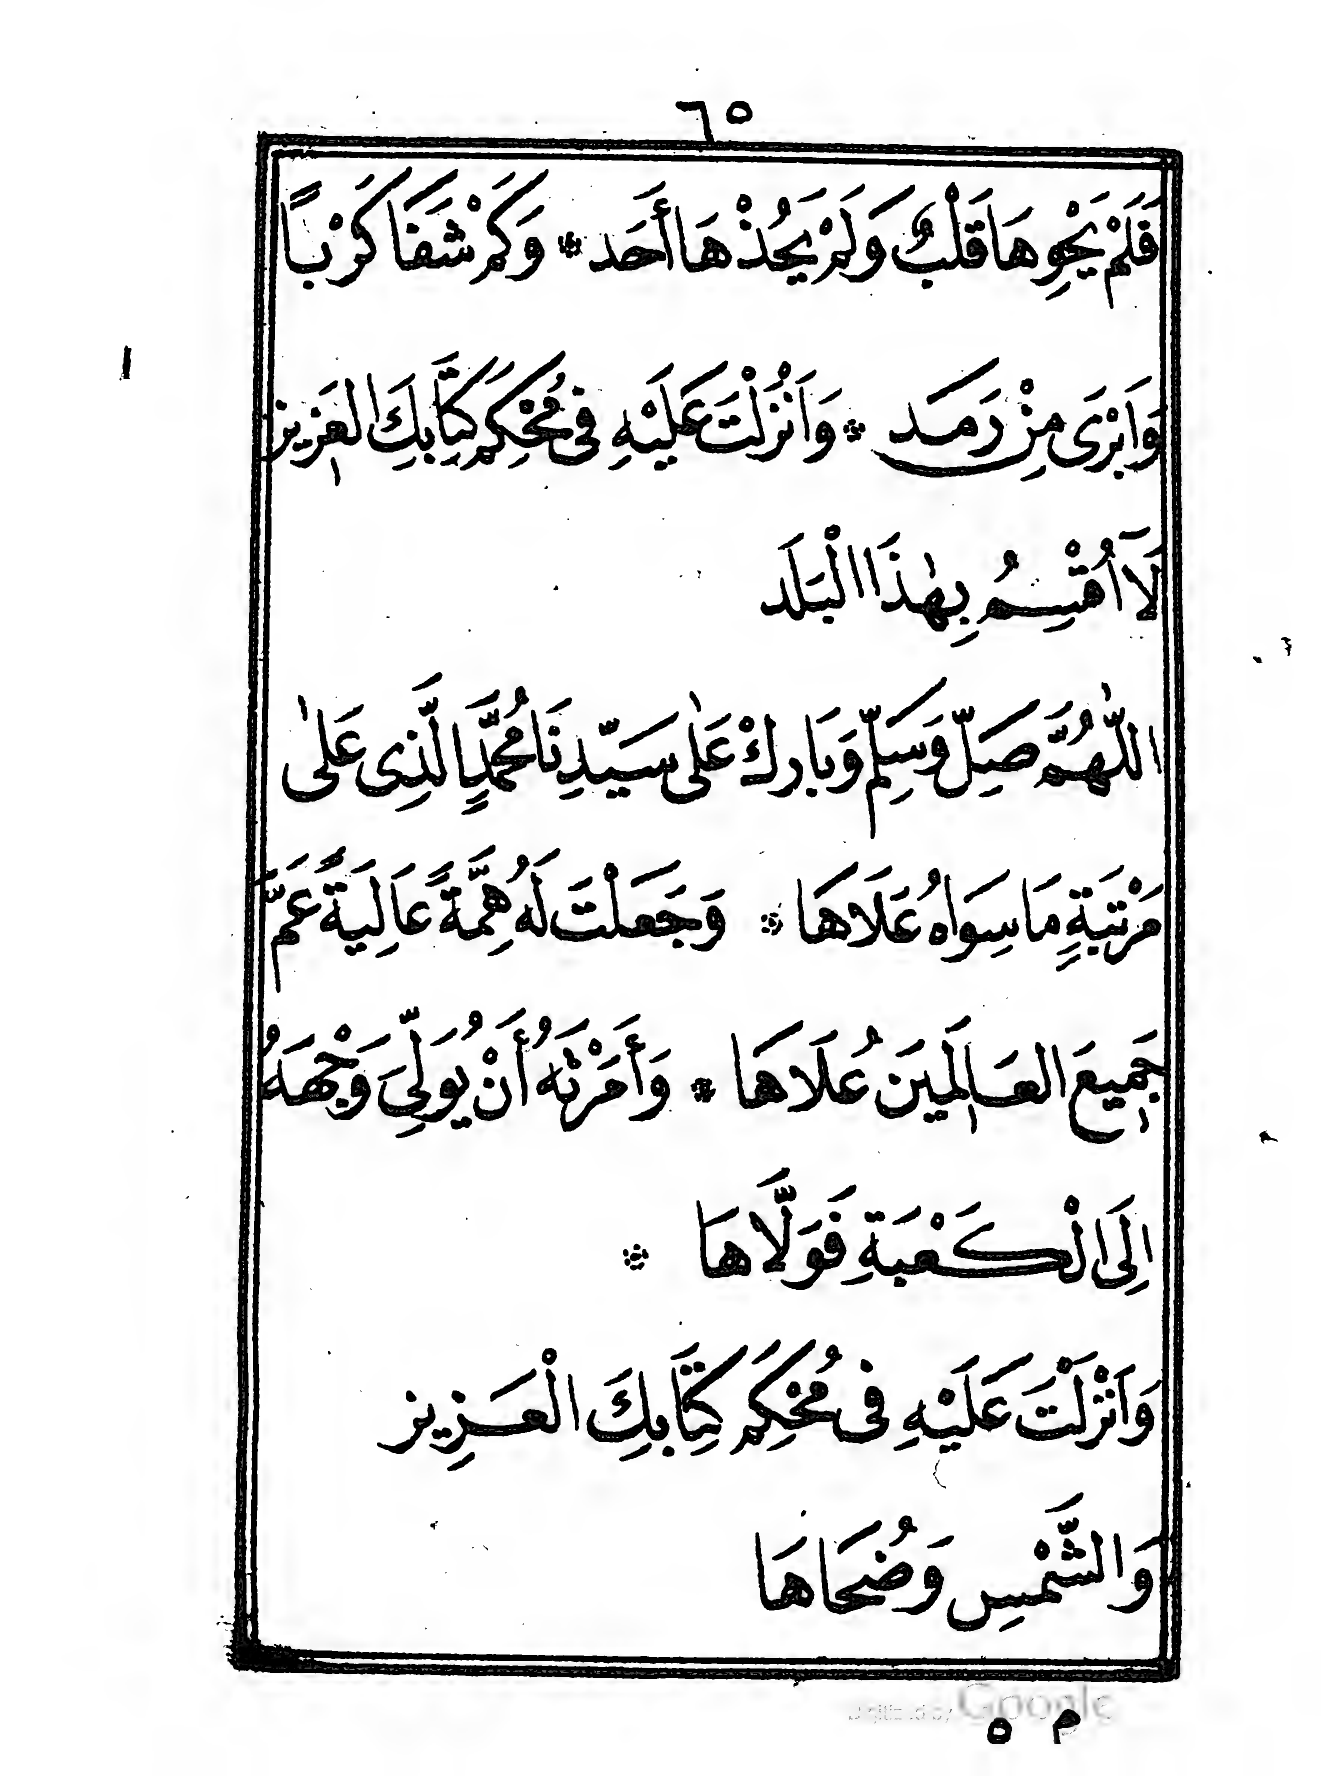 ٦٥
فَلَمْ يَحْوِهَا قَلْبٌ وَلَمْ يَحُذْهَا أَحَد * وَكَمْ شَفَا كَرْبًا
وَاَبْرَى مِنْ رَمَد * وَاَنْزَلْتَ عَلَيْهِ فِى مُحْكَمِ كِتَابِكَ الْعَزِيزِ
لَآ اُقْسِمُ بِهٰذَا الْبَلَد
اللّٰهُمَّ صَلِّ وَسَلِّمْ وَبَارِكْ عَلٰى سَيِّدِنَا مُحَمَّدٍ الَّذِى عَلٰى
مَرْتَبَةٍ مَا سِوَاهُ عَلَاهَا * وَجَعَلْتَ لَهُ هِمَّةً عَالِيَةً عَمَّ
جَمِيعَ الْعَالَمِينَ عُلَاهَا * وَأَمَرْتَهُ أَنْ يُوَلِّيَ وَجْهَهُ
اِلَى الْكَعْبَةِ فَوَلَّاهَا *
وَاَنْزَلْتَ عَلَيْهِ فِى مُحْكَمِ كِتَابِكَ الْعَزِيزِ
وَالشَّمْسِ وَضُحَاهَا
م ٥
Digitized by Google